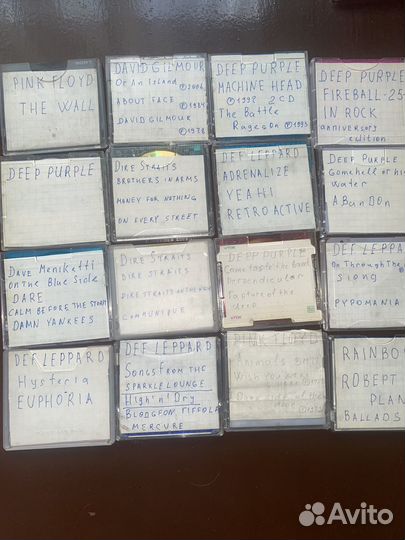 PINK FLOYD
THE WALL
DAVID GILMOUR
On An Island
℗2006
ABOUT FACE
℗1984
DAVID GILMOUR
℗1978
DEEP PURPLE
MACHINE HEAD
℗1997 2CD
The Battle
Rages on ℗1993
DEEP PURPLE
FIREBALL-25-
IN ROCK
anniversary
edition
DEEP PURPLE
DIRE STRAITS
BROTHERS IN ARMS
MONEY FOR NOTHING
ON EVERY STREET
DEF LEPPARD
ADRENALIZE
YEAH!
RETRO ACTIVE
DEEP PURPLE
Come hell or hig
water
ABanDOn
Dave Meniketti
on the Blue Side
DARE
CALM BEFORE THE STORM
DAMN YANKEES
DIRE STRAITS
DIRE STRAITS
DIRE STRAITS ON THE NIGH
COMMUNIQUE
DEEP PURPLE
Come taste the band
Perpendicular
deep
DEF LEPPA
On Through the
siong
PYPOMANIA
DEF LEPPARD
Hysteria
EUPHORIA
DEF LEPPARD
SONGS FROM THE
SPARKLE LOUNGE
High'n'Dry
MERCURE
PINK FLOYD
Animals
Wish you were
RAINBO
ROBERT
PLAN
BALLADS
Avito